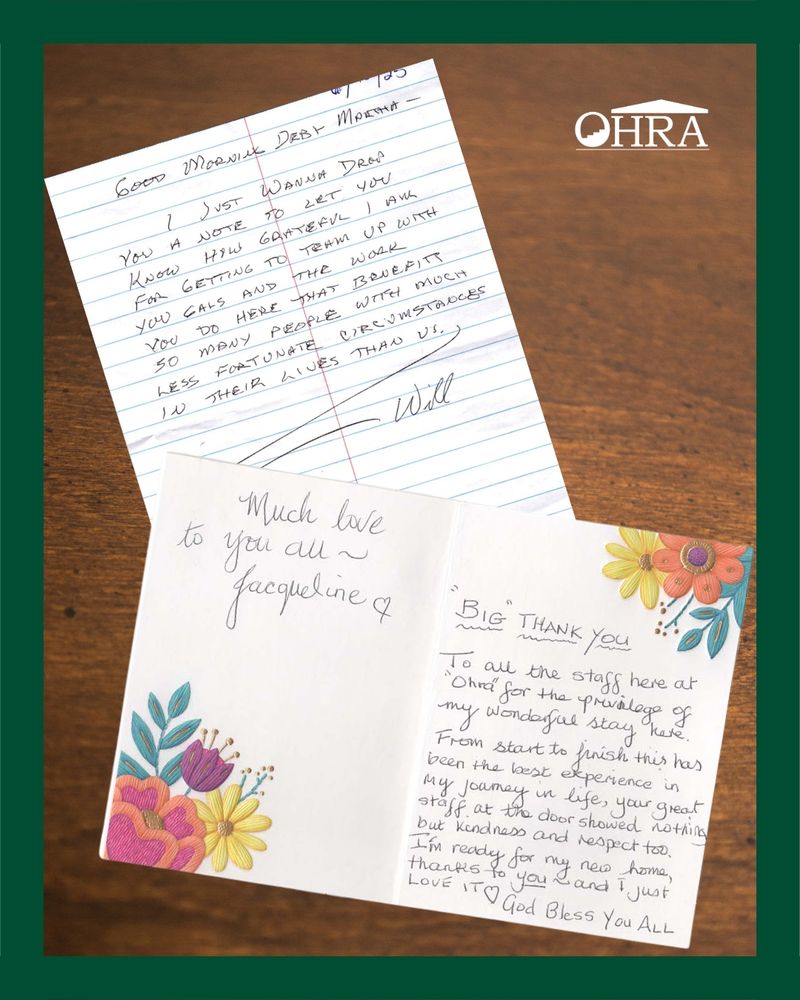 OHRA
GOOD MORNING DEBY MARTHA –
I JUST WANNA DROP
YOU A NOTE TO LET YOU
KNOW HOW GRATEFUL I AM
FOR GETTING TO TEAM UP WITH
YOU GALS AND THE WORK
YOU DO HERE THAT BENEFITS
SO MANY PEOPLE WITH MUCH
LESS FORTUNATE CIRCUMSTANCES
IN THEIR LIVES THAN US.
Will
Much love
to you all ~
Jacqueline ♡
"BIG" THANK YOU
To all the staff here at
"Ohra" for the privilege of
my wonderful stay here.
From start to finish this has
been the best experience in
my journey in life, your great
staff at the door showed nothing
but kindness and respect too.
I'm ready for my new home,
thanks to you ~ and I just
LOVE IT ♡ God Bless You ALL